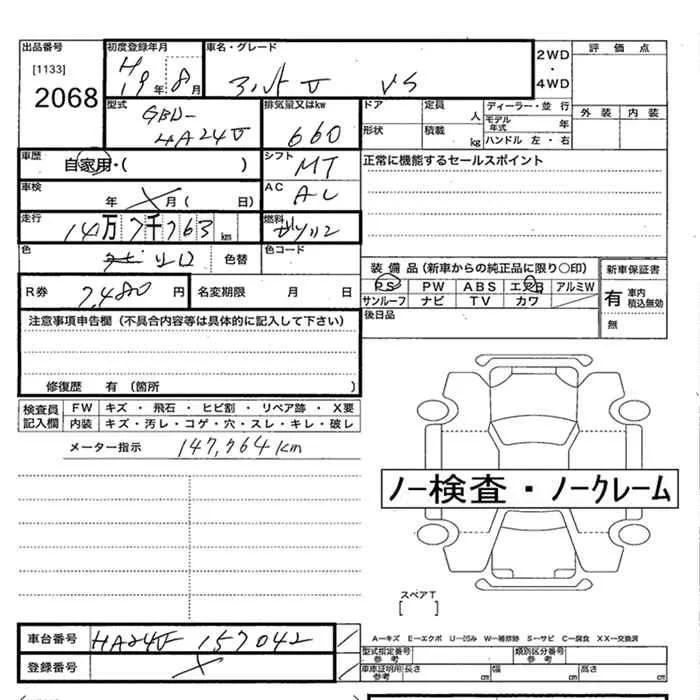 出品番号 初度登録年月 車名・グレード 2WD 評価点
[1133] H
2068 19年8月 ・ 4WD
型式 排気量又はkw ドア 定員 人 ディーラー・並 行 外装 内装
GBD- モデル年式 年
HA24V 660 形状 積載 kg ハンドル 左・右
車歴 自家用・( ) シフト MT 正常に機能するセールスポイント
車検 年 X 月( 日) AC AC
走行 14万7千763km 燃料 ガソリン
色 シロ 色替 色コード 装備品(新車からの純正品に限り○印) 新車保証書
R券 7,480円 名変期限 月 日 PS PW ABS エアB アルミW 有 車内積込無効
サンルーフ ナビ TV カワ 無
注意事項申告欄(不具合内容等は具体的に記入して下さい) 後日品
修復歴 有(箇所 )
検査員記入欄 FW キズ・飛石・ヒビ割・リペア跡・X要
内装 キズ・汚レ・コゲ・穴・スレ・キレ・破レ
メーター指示 147,764km
ノー検査・ノークレーム
スペアT
[ ]
車台番号 HA24V 157042 A－キズ E－エクボ U－凹み W－補修跡 S－サビ C－腐食 XX－交換済
型式指定番号 参考 類別区分番号 参考
登録番号 X 車庫証明用 参考 長さ cm 幅 cm 高さ cm